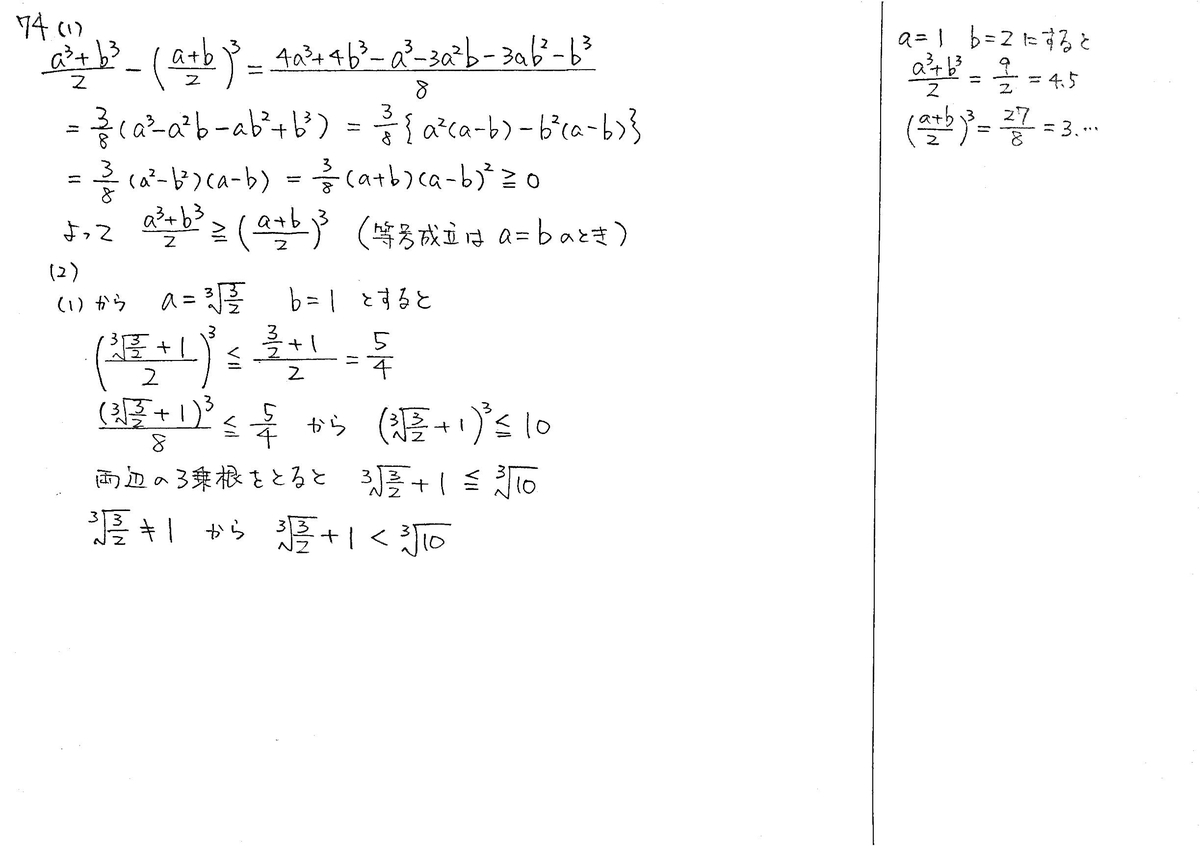 74 (1)
(a³+b³)/2 − ((a+b)/2)³ = (4a³+4b³−a³−3a²b−3ab²−b³)/8
= 3/8 (a³−a²b−ab²+b³) = 3/8 {a²(a−b)−b²(a−b)}
= 3/8 (a²−b²)(a−b) = 3/8 (a+b)(a−b)² ≧ 0
よって (a³+b³)/2 ≧ ((a+b)/2)³ (等号成立は a=b のとき)
(2)
(1)から a=∛(3/2) b=1 とすると
((∛(3/2)+1)/2)³ ≦ (3/2+1)/2 = 5/4
(∛(3/2)+1)³/8 ≦ 5/4 から (∛(3/2)+1)³ ≦ 10
両辺の3乗根をとると ∛(3/2)+1 ≦ ∛10
∛(3/2) ≠ 1 から ∛(3/2)+1 < ∛10
a=1 b=2にすると
(a³+b³)/2 = 9/2 = 4.5
((a+b)/2)³ = 27/8 = 3.…